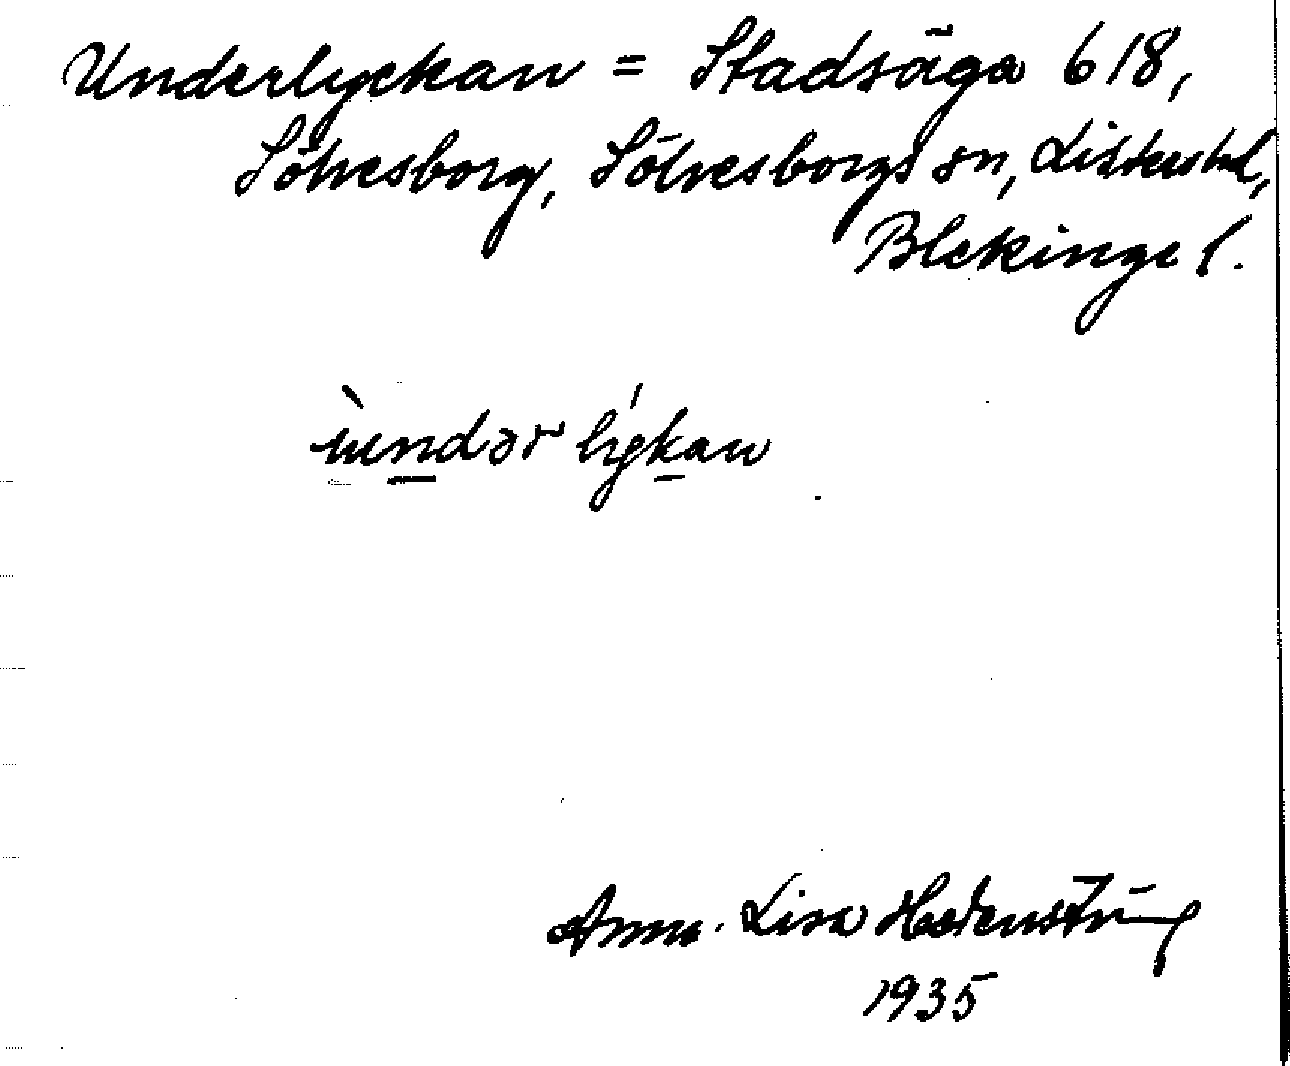 Underlyckan = Stadsäga 618,
Sölvesborg, Sölvesborgs sn, Listers hd,
Blekinge l.
ùndər lýkan
Anna-Lisa
1935